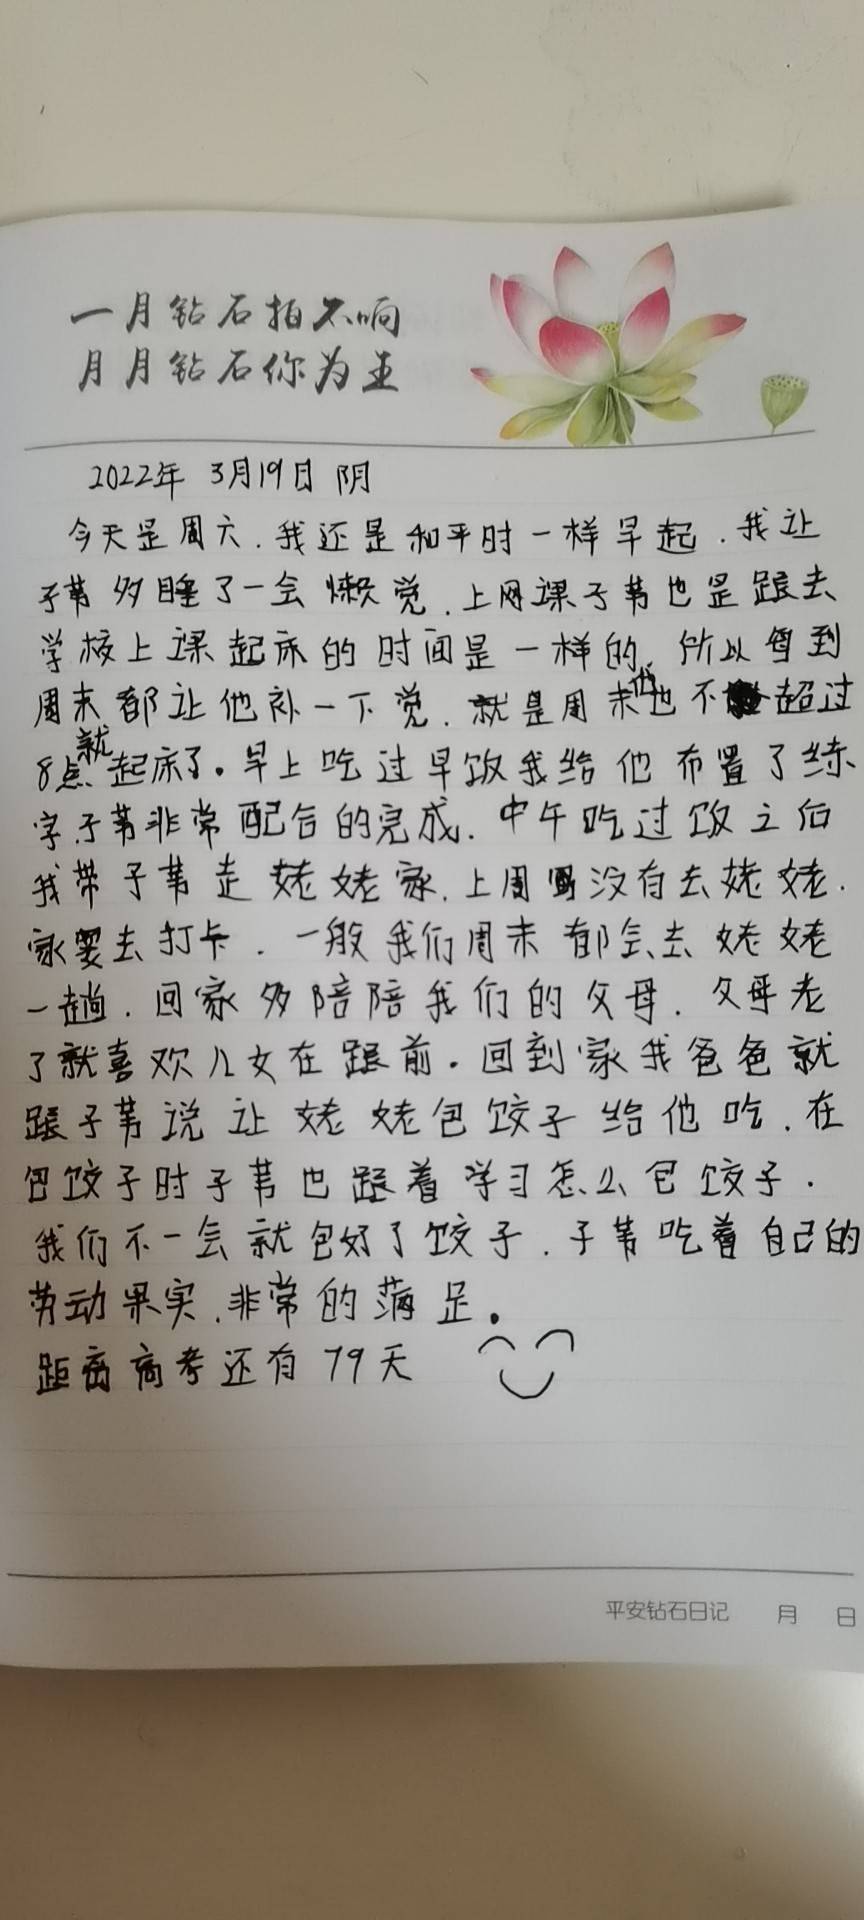 一月钻石拍不响
月月钻石你为主
2022年 3月19日 阴
今天是周六.我还是和平时一样早起.我让
子苇多睡了一会懒觉.上网课子苇也是跟去
学校上课起床的时间是一样的,所以每到
周末都让他补一下觉.就是周末他也不超过
8点就起床了。早上吃过早饭我给他布置了练
字,子苇非常配合的完成.中午吃过饭之后
我带子苇走姥姥家.上周没有去姥姥.
家要去打卡.一般我们周末都会去姥姥
一趟.回家多陪陪我们的父母.父母老
了就喜欢儿女在跟前。回到家我爸爸就
跟子苇说让姥姥包饺子给他吃.在
包饺子时子苇也跟着学习怎么包饺子.
我们不一会就包好了饺子.子苇吃着自己的
劳动果实,非常的满足。
距离高考还有79天
平安钻石日记 月 日